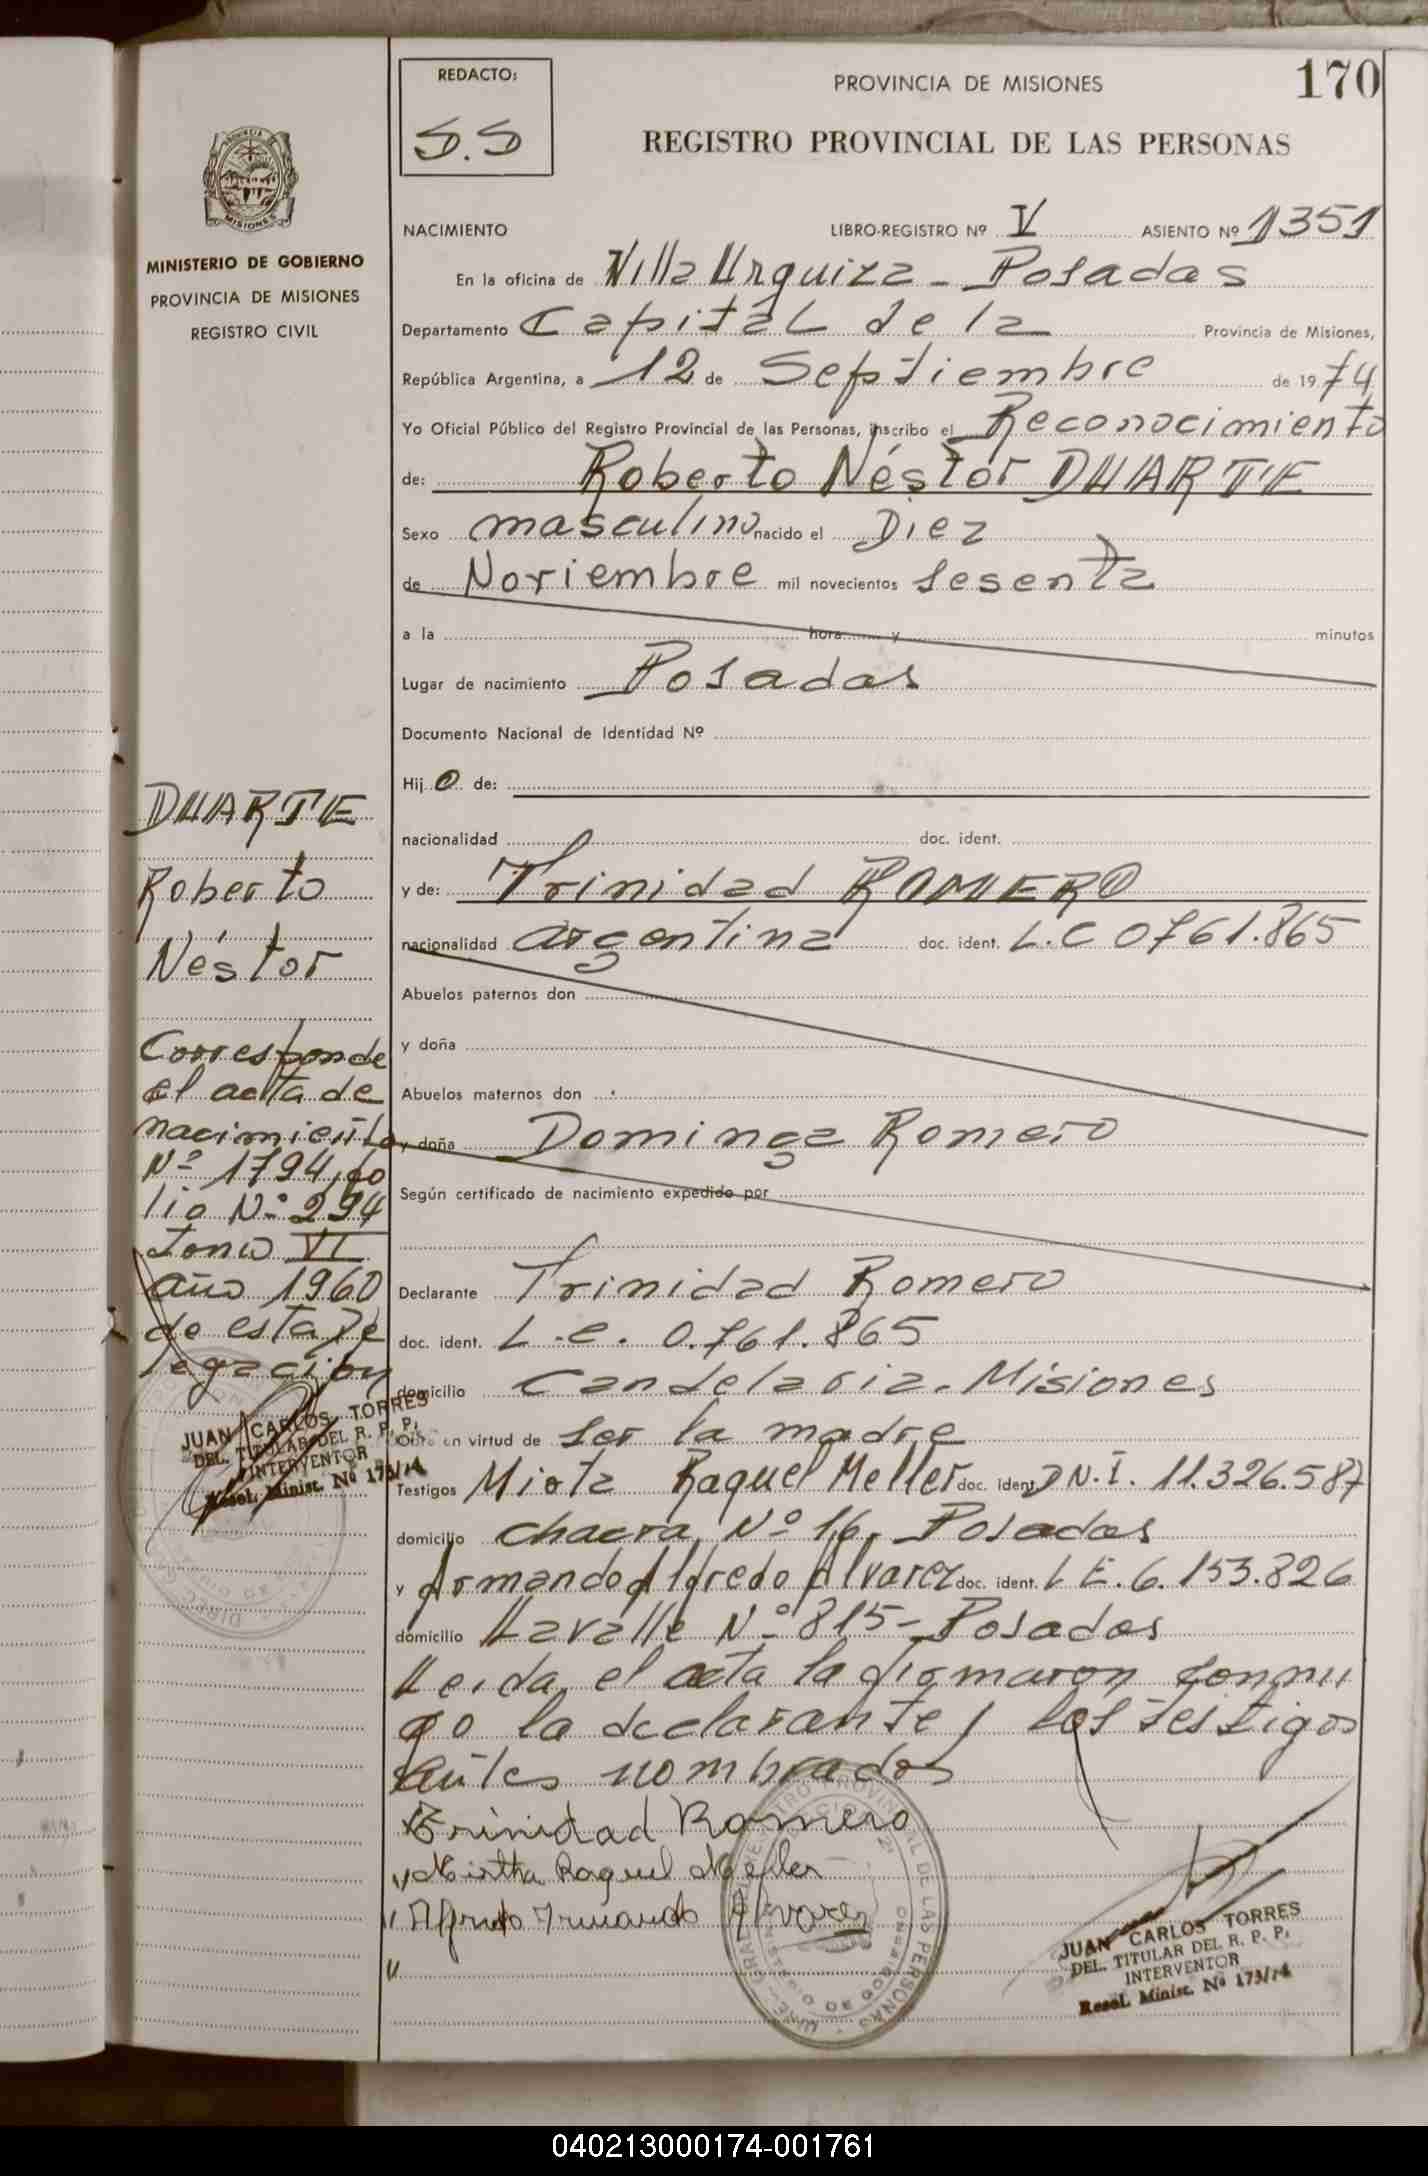 REDACTO:
S.S
PROVINCIA DE MISIONES
170
REGISTRO PROVINCIAL DE LAS PERSONAS
MINISTERIO DE GOBIERNO
PROVINCIA DE MISIONES
REGISTRO CIVIL
NACIMIENTO LIBRO-REGISTRO Nº V ASIENTO Nº 1351
En la oficina de Villa Urquiza - Posadas
Departamento Capital de la Provincia de Misiones,
República Argentina, a 12 de Septiembre de 1974
Yo Oficial Público del Registro Provincial de las Personas, inscribo el Reconocimiento
de: Roberto Néstor DUARTE
Sexo masculino nacido el Diez
de Noviembre mil novecientos sesenta
a la hora y minutos
Lugar de nacimiento Posadas
Documento Nacional de Identidad Nº
Hijo de:
nacionalidad doc. ident.
y de: Trinidad ROMERO
nacionalidad argentina doc. ident. L.C 0761.865
Abuelos paternos don
y doña
Abuelos maternos don
y doña Dominga Romero
Según certificado de nacimiento expedido por
Declarante Trinidad Romero
doc. ident. L.C. 0.761.865
domicilio Candelaria. Misiones
Obra en virtud de ser la madre
Testigos Mirta Raquel Meller doc. ident. D N.I. 11.326.587
domicilio chacra Nº 16. Posadas
y Armando Alfredo Alvarez doc. ident. L E. 6.153.826
domicilio Lavalle Nº 815 - Posadas
Leida el acta la firmaron conmi
go la declarante y los testigos
antes nombrados
Trinidad Romero
Mirtha Raquel Meller
Alfredo Armando Alvarez
DUARTE
Roberto
Néstor
Corresponde
el acta de
nacimiento
Nº 1794, fo
lio Nº 294
tomo VI
año 1960
de esta De
legación
JUAN CARLOS TORRES
DEL. TITULAR DEL R. P. P.
INTERVENTOR
Resol. Minist. Nº 173/74
JUAN CARLOS TORRES
DEL. TITULAR DEL R. P. P.
INTERVENTOR
Resol. Minist. Nº 173/74
040213000174-001761